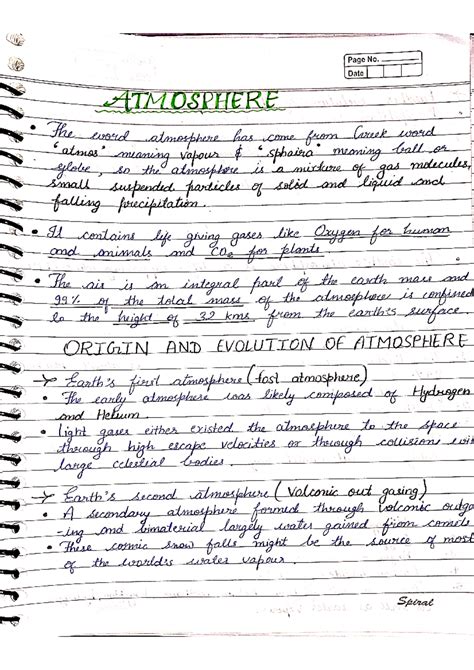 Page No.
Date
ATMOSPHERE
• The word atmosphere has come from Greek word
"atmos" meaning vapour & "sphaira" meaning ball or
globe, so the atmosphere is a mixture of gas molecules,
small suspended particles of solid and liquid and
falling precipitation.
• It contains life giving gases like Oxygen for human
and animals and CO2 for plants
• The air is an integral part of the earth mass and
99% of the total mass of the atmosphere is confined
to the height of 32 kms from the earth's surface.
ORIGIN AND EVOLUTION OF ATMOSPHERE
→ Earth's first atmosphere (lost atmosphere)
• The early atmosphere was likely composed of Hydrogen
and Helium.
• Light gases either existed the atmosphere to the space
through high escape velocities or through collisions with
large celestial bodies.
→ Earth's second atmosphere (Volconic out gasing)
• A secondary atmosphere formed through volconic outga
-ing and material largely water gained from comets
• These cosmic snow falls might be the source of most
of the world's water vapour.
Spiral